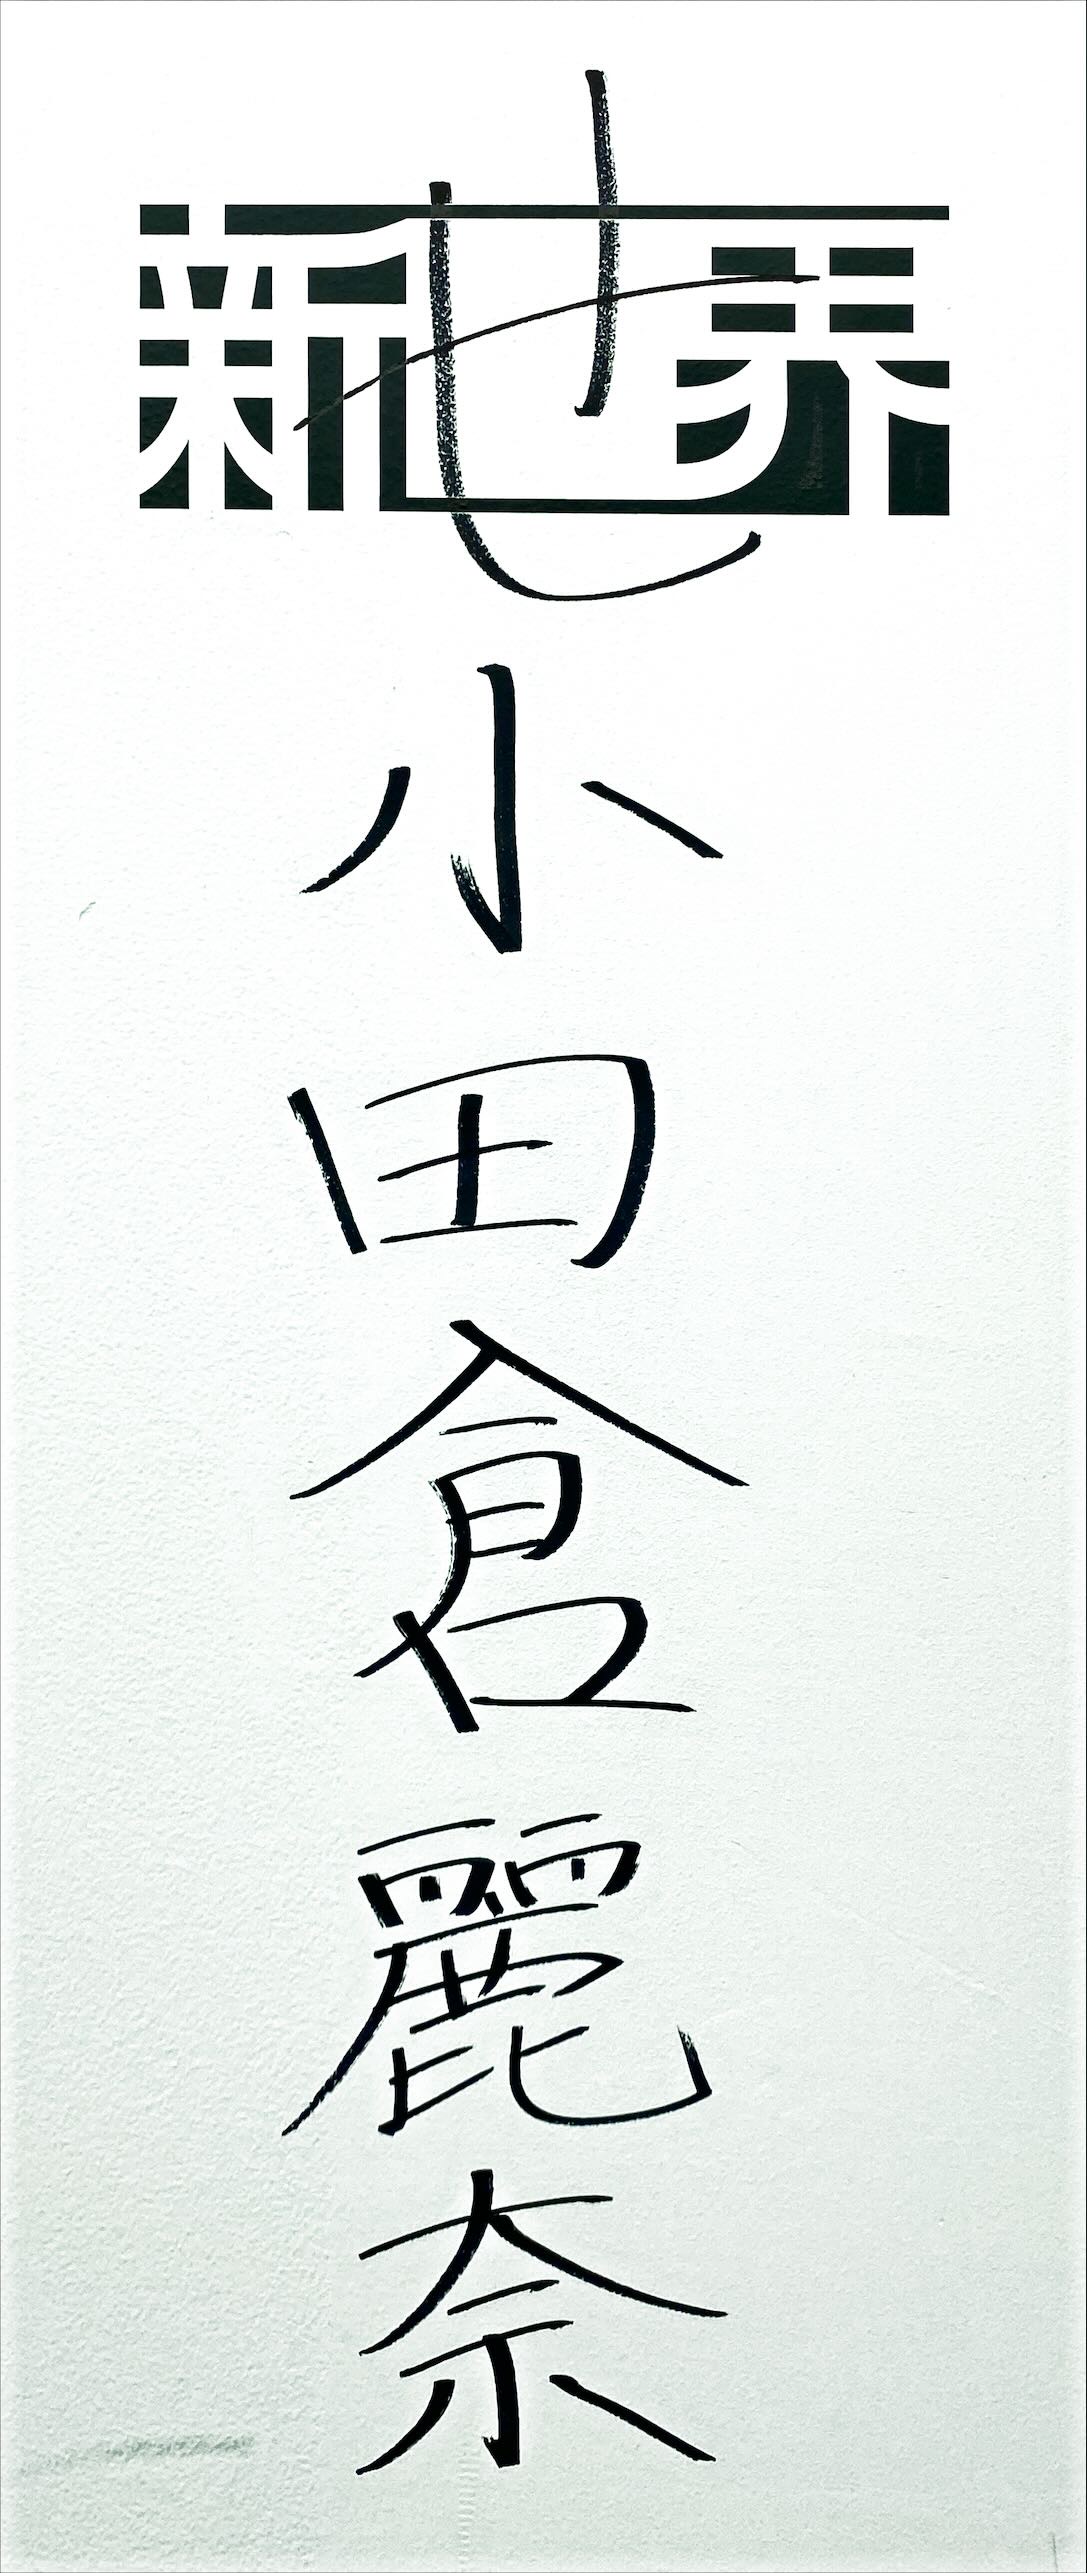 新世界
小田倉麗奈